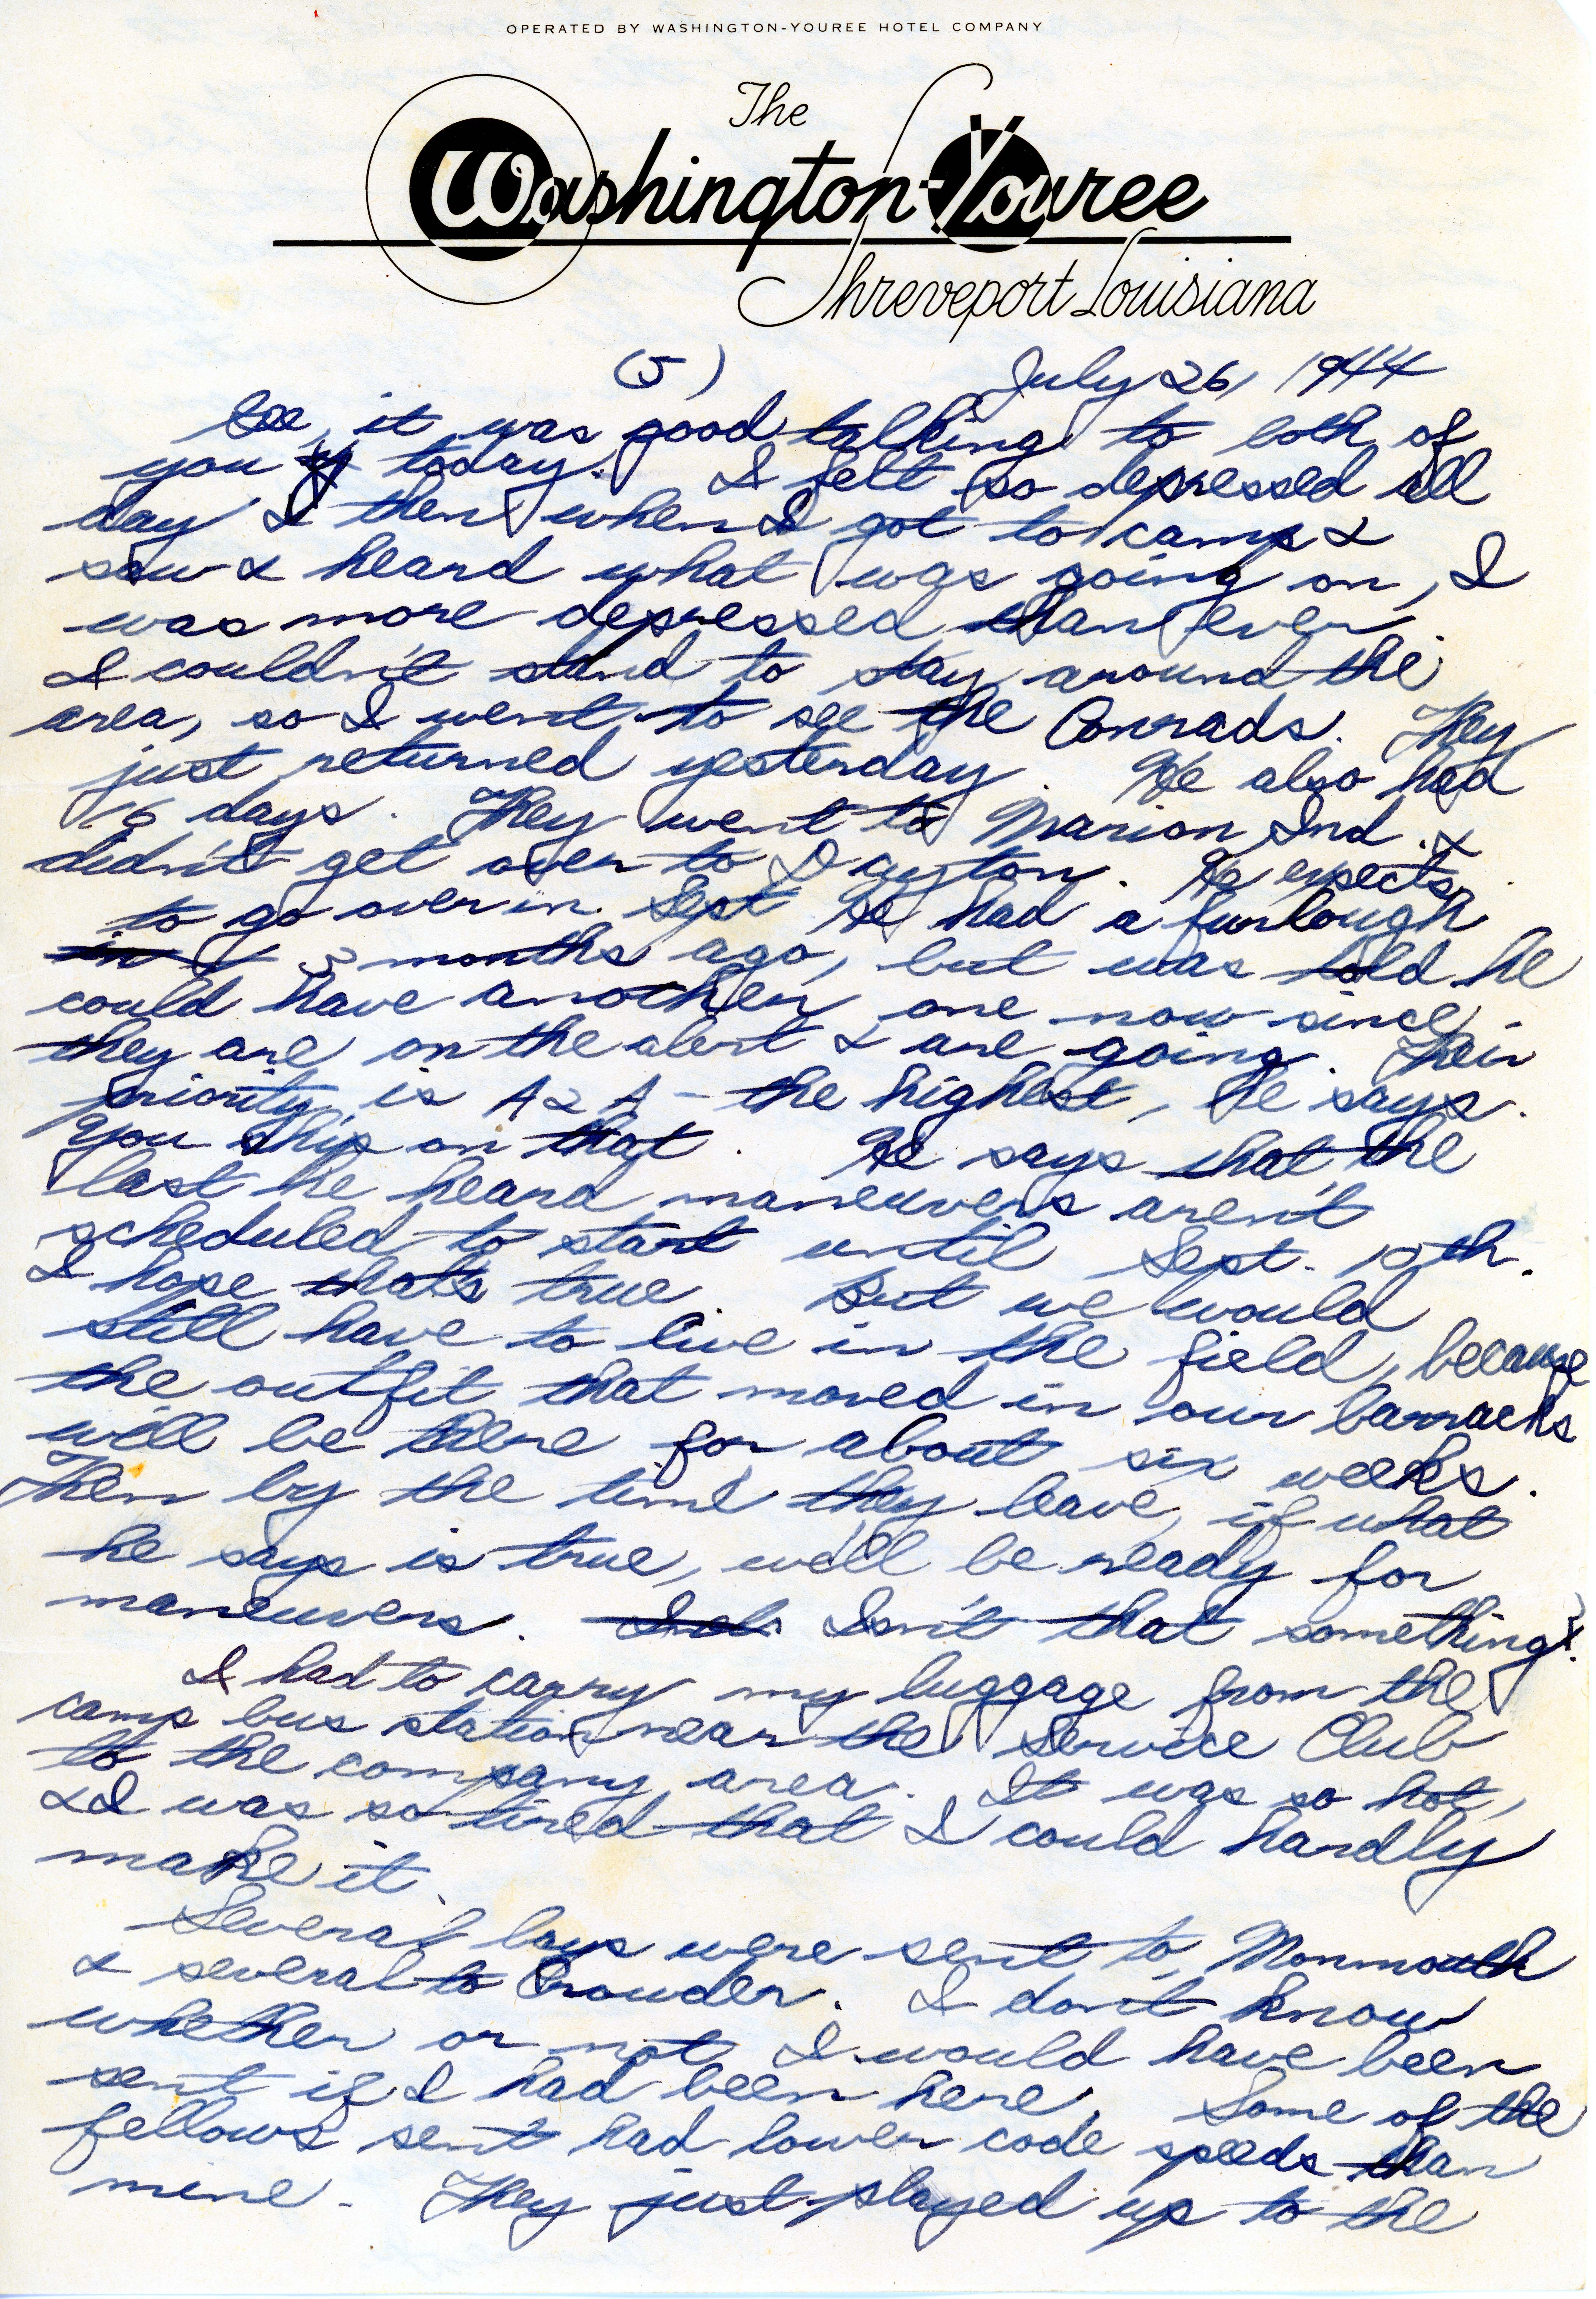 OPERATED BY WASHINGTON-YOUREE HOTEL COMPANY
The
Washington-Youree
Shreveport Louisiana
(5) July 26, 1944
Gee, it was good talking to both of
you today. I felt so depressed all
day & then when I got to camp &
saw & heard what was going on, I
was more depressed than ever.
I couldn't stand to stay around the
area, so I went to see the Conrads. They
just returned yesterday. He also had
16 days. They went to Marion Ind. &
didn't get over to Dayton. He expects
to go over in Sept He had a furlough
in 3 months ago, but was told he
could have another one now since
they are on the alert & are going. Their
priority is A2A - the highest, he says.
You ship on that. He says that the
last he heard maneuvers aren't
scheduled to start until Sept. 10th.
I hope that's true. But we would
still have to live in the field, because
the outfit that moved in our barracks
will be there for about six weeks.
Then by the time they leave, if what
he says is true, we'll be ready for
maneuvers. Isn't that something?
I had to carry my luggage from the
camp bus station near the Service Club
to the company area. It was so hot,
& I was so tired that I could hardly
make it.
Several boys were sent to Monmouth
& several to Crowder. I don't know
whether or not I would have been
sent if I had been here. Some of the
fellows sent had lower code speeds than
mine. They just played up to the